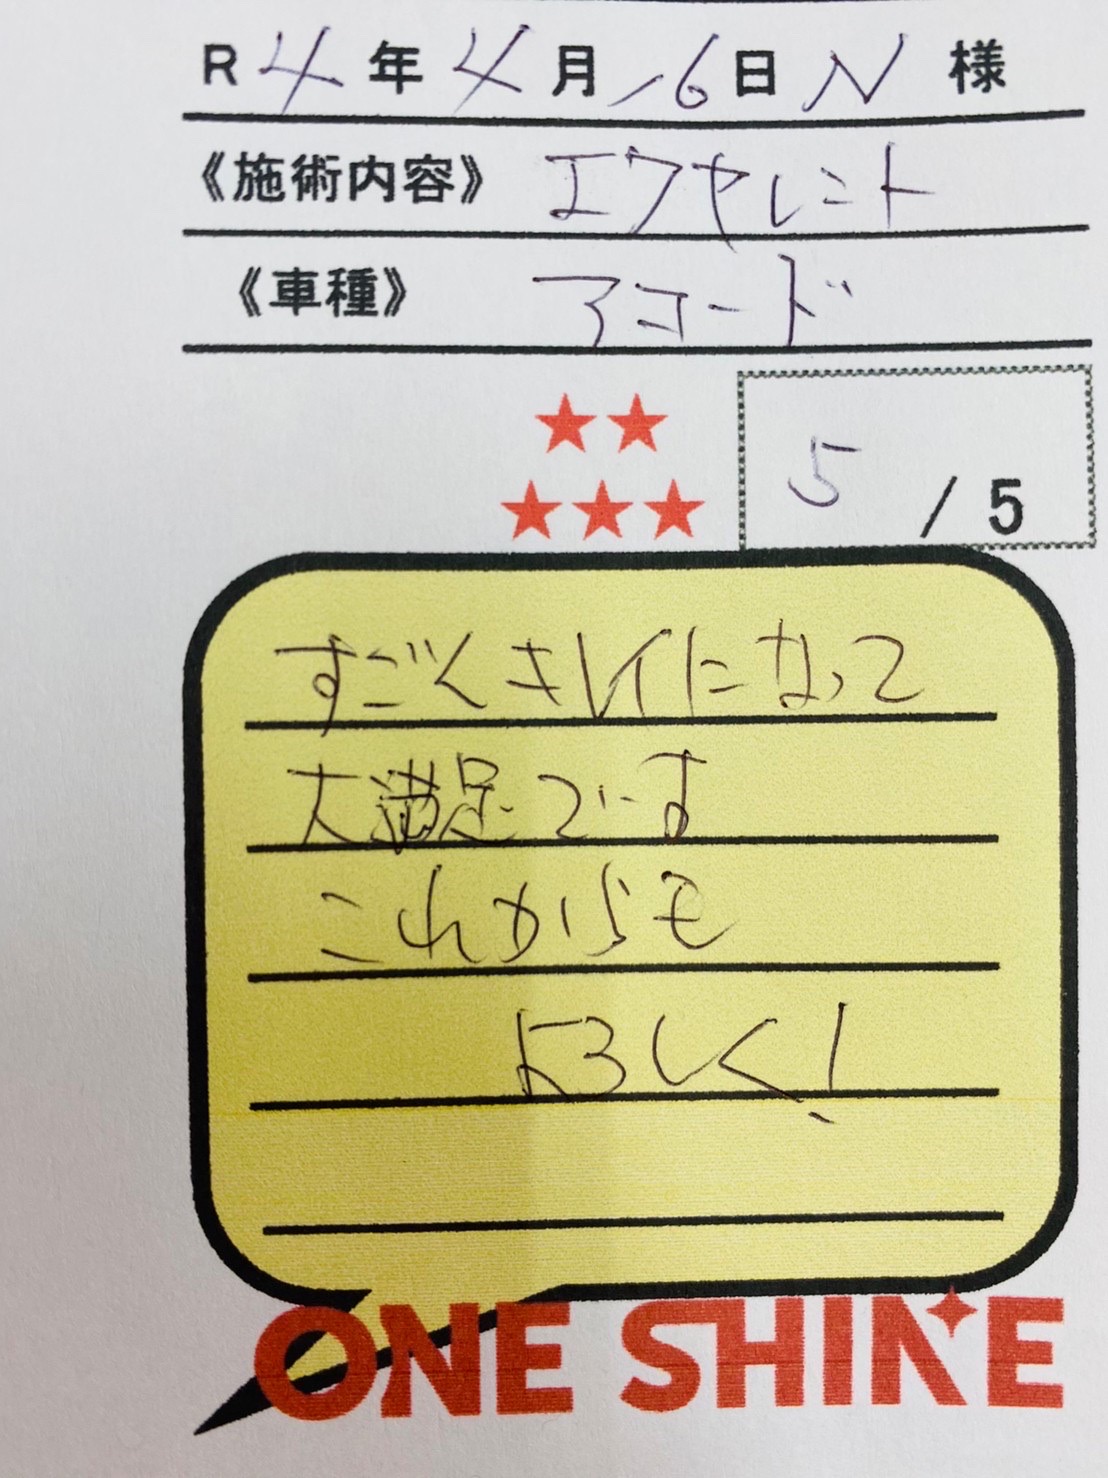 R4年4月16日 N 様
《施術内容》 エクセレント
《車種》 アコード
★★
★★★
5 / 5
すごくキレイになって
大満足です
これからも
よろしく!
ONE SHINE